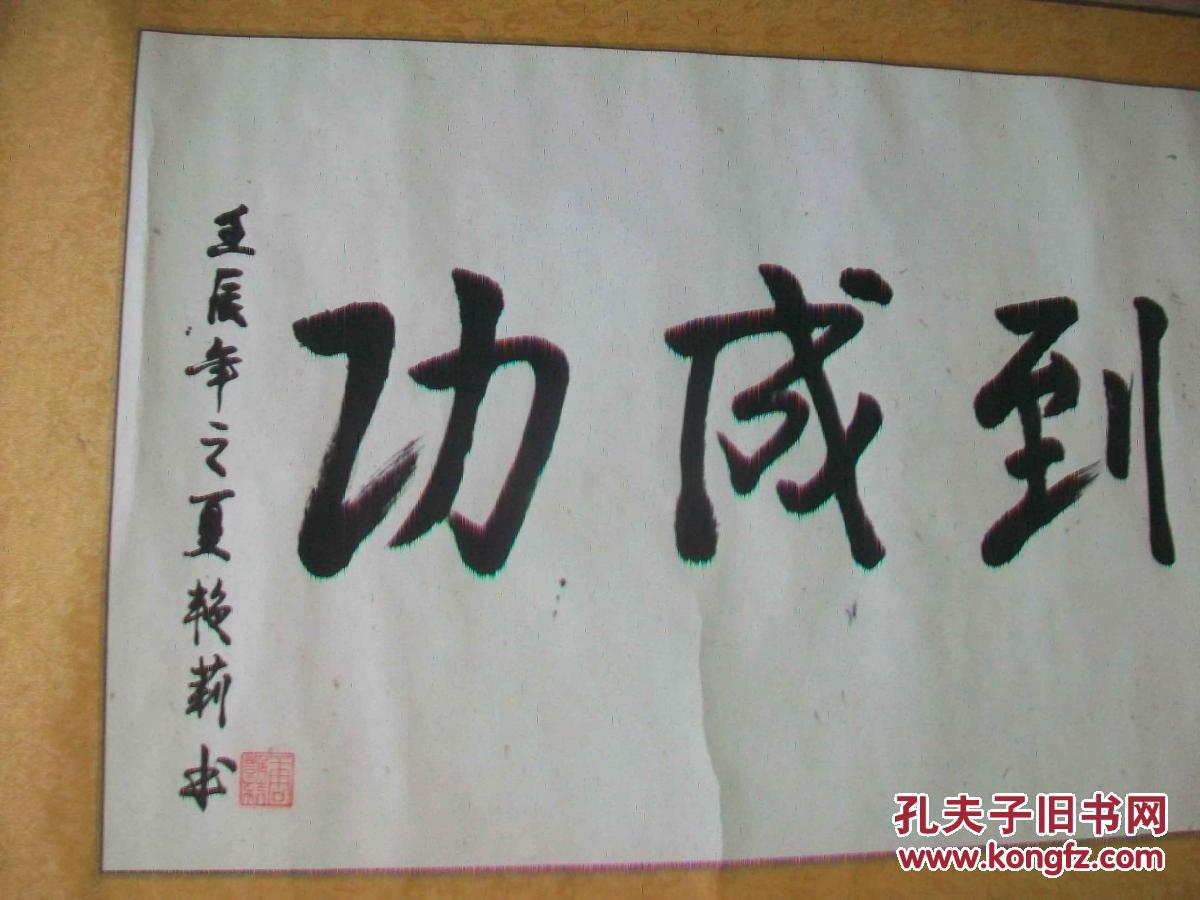 到成功
壬辰年之夏艳莉书
孔夫子旧书网
www.kongfz.com